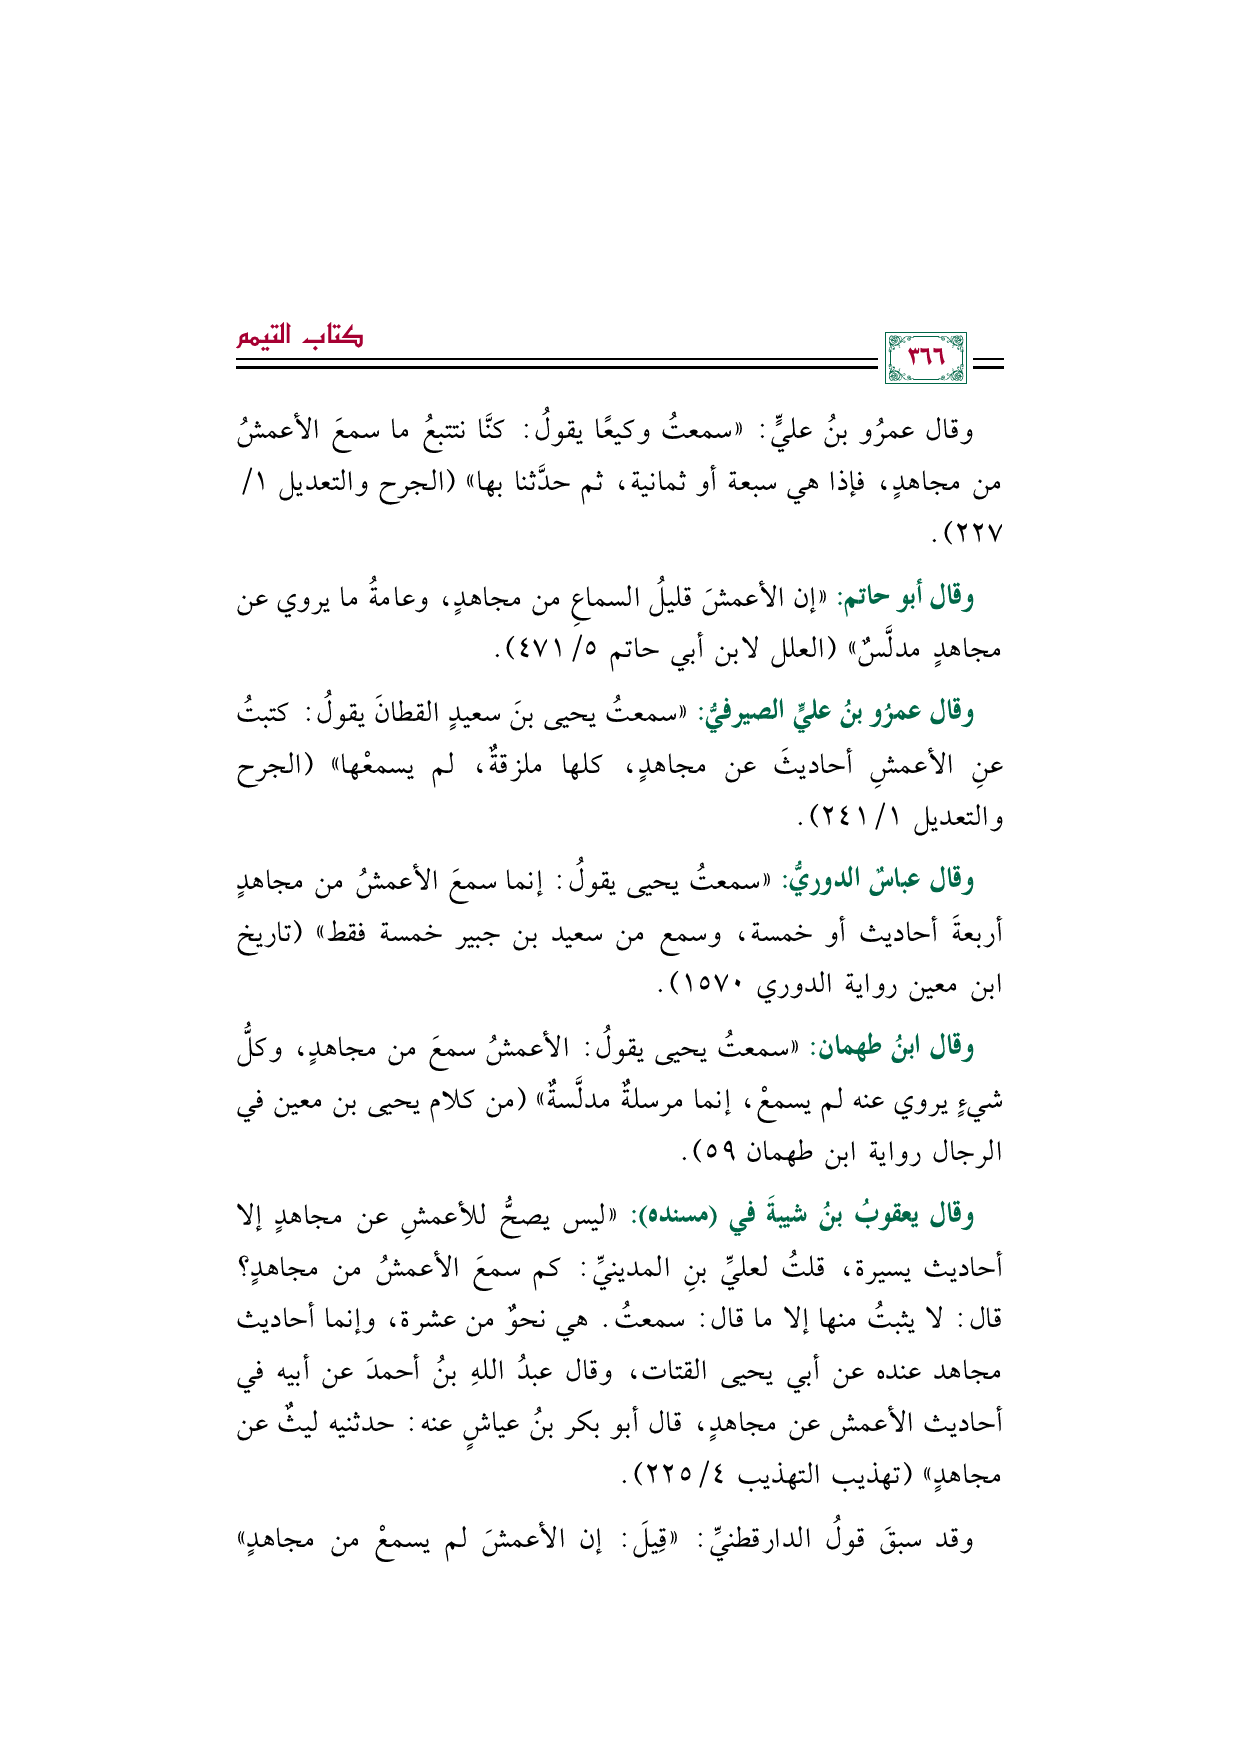 كتاب التيمم
٣٦٦
وقال عمرُو بنُ عليٍّ: «سمعتُ وكيعًا يقولُ: كنَّا نتتبعُ ما سمعَ الأعمشُ
من مجاهدٍ، فإذا هي سبعة أو ثمانية، ثم حدَّثنا بها» (الجرح والتعديل ١/
٢٢٧).
وقال أبو حاتم: «إن الأعمشَ قليلُ السماعِ من مجاهدٍ، وعامةُ ما يروي عن
مجاهدٍ مدلَّسٌ» (العلل لابن أبي حاتم ٥/ ٤٧١).
وقال عمرُو بنُ عليٍّ الصيرفيُّ: «سمعتُ يحيى بنَ سعيدٍ القطانَ يقولُ: كتبتُ
عنِ الأعمشِ أحاديثَ عن مجاهدٍ، كلها ملزقةٌ، لم يسمعْها» (الجرح
والتعديل ١/ ٢٤١).
وقال عباسٌ الدوريُّ: «سمعتُ يحيى يقولُ: إنما سمعَ الأعمشُ من مجاهدٍ
أربعةَ أحاديث أو خمسة، وسمع من سعيد بن جبير خمسة فقط» (تاريخ
ابن معين رواية الدوري ١٥٧٠).
وقال ابنُ طهمان: «سمعتُ يحيى يقولُ: الأعمشُ سمعَ من مجاهدٍ، وكلُّ
شيءٍ يروي عنه لم يسمعْ، إنما مرسلةٌ مدلَّسةٌ» (من كلام يحيى بن معين في
الرجال رواية ابن طهمان ٥٩).
وقال يعقوبُ بنُ شيبةَ في (مسنده): «ليس يصحُّ للأعمشِ عن مجاهدٍ إلا
أحاديث يسيرة، قلتُ لعليِّ بنِ المدينيِّ: كم سمعَ الأعمشُ من مجاهدٍ؟
قال: لا يثبتُ منها إلا ما قال: سمعتُ. هي نحوٌ من عشرة، وإنما أحاديث
مجاهد عنده عن أبي يحيى القتات، وقال عبدُ اللهِ بنُ أحمدَ عن أبيه في
أحاديث الأعمش عن مجاهدٍ، قال أبو بكر بنُ عياشٍ عنه: حدثنيه ليثٌ عن
مجاهدٍ» (تهذيب التهذيب ٤/ ٢٢٥).
وقد سبقَ قولُ الدارقطنيِّ: «قِيلَ: إن الأعمشَ لم يسمعْ من مجاهدٍ»